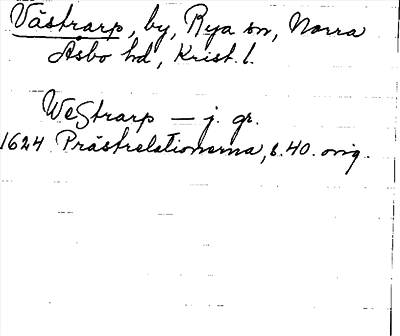 Västrarp, by, Rya sn, Norra
Åsbo hd, Krist. l.
WeStrarp — j. gr.
1624 Prästrelationerna, s. 40. orig.